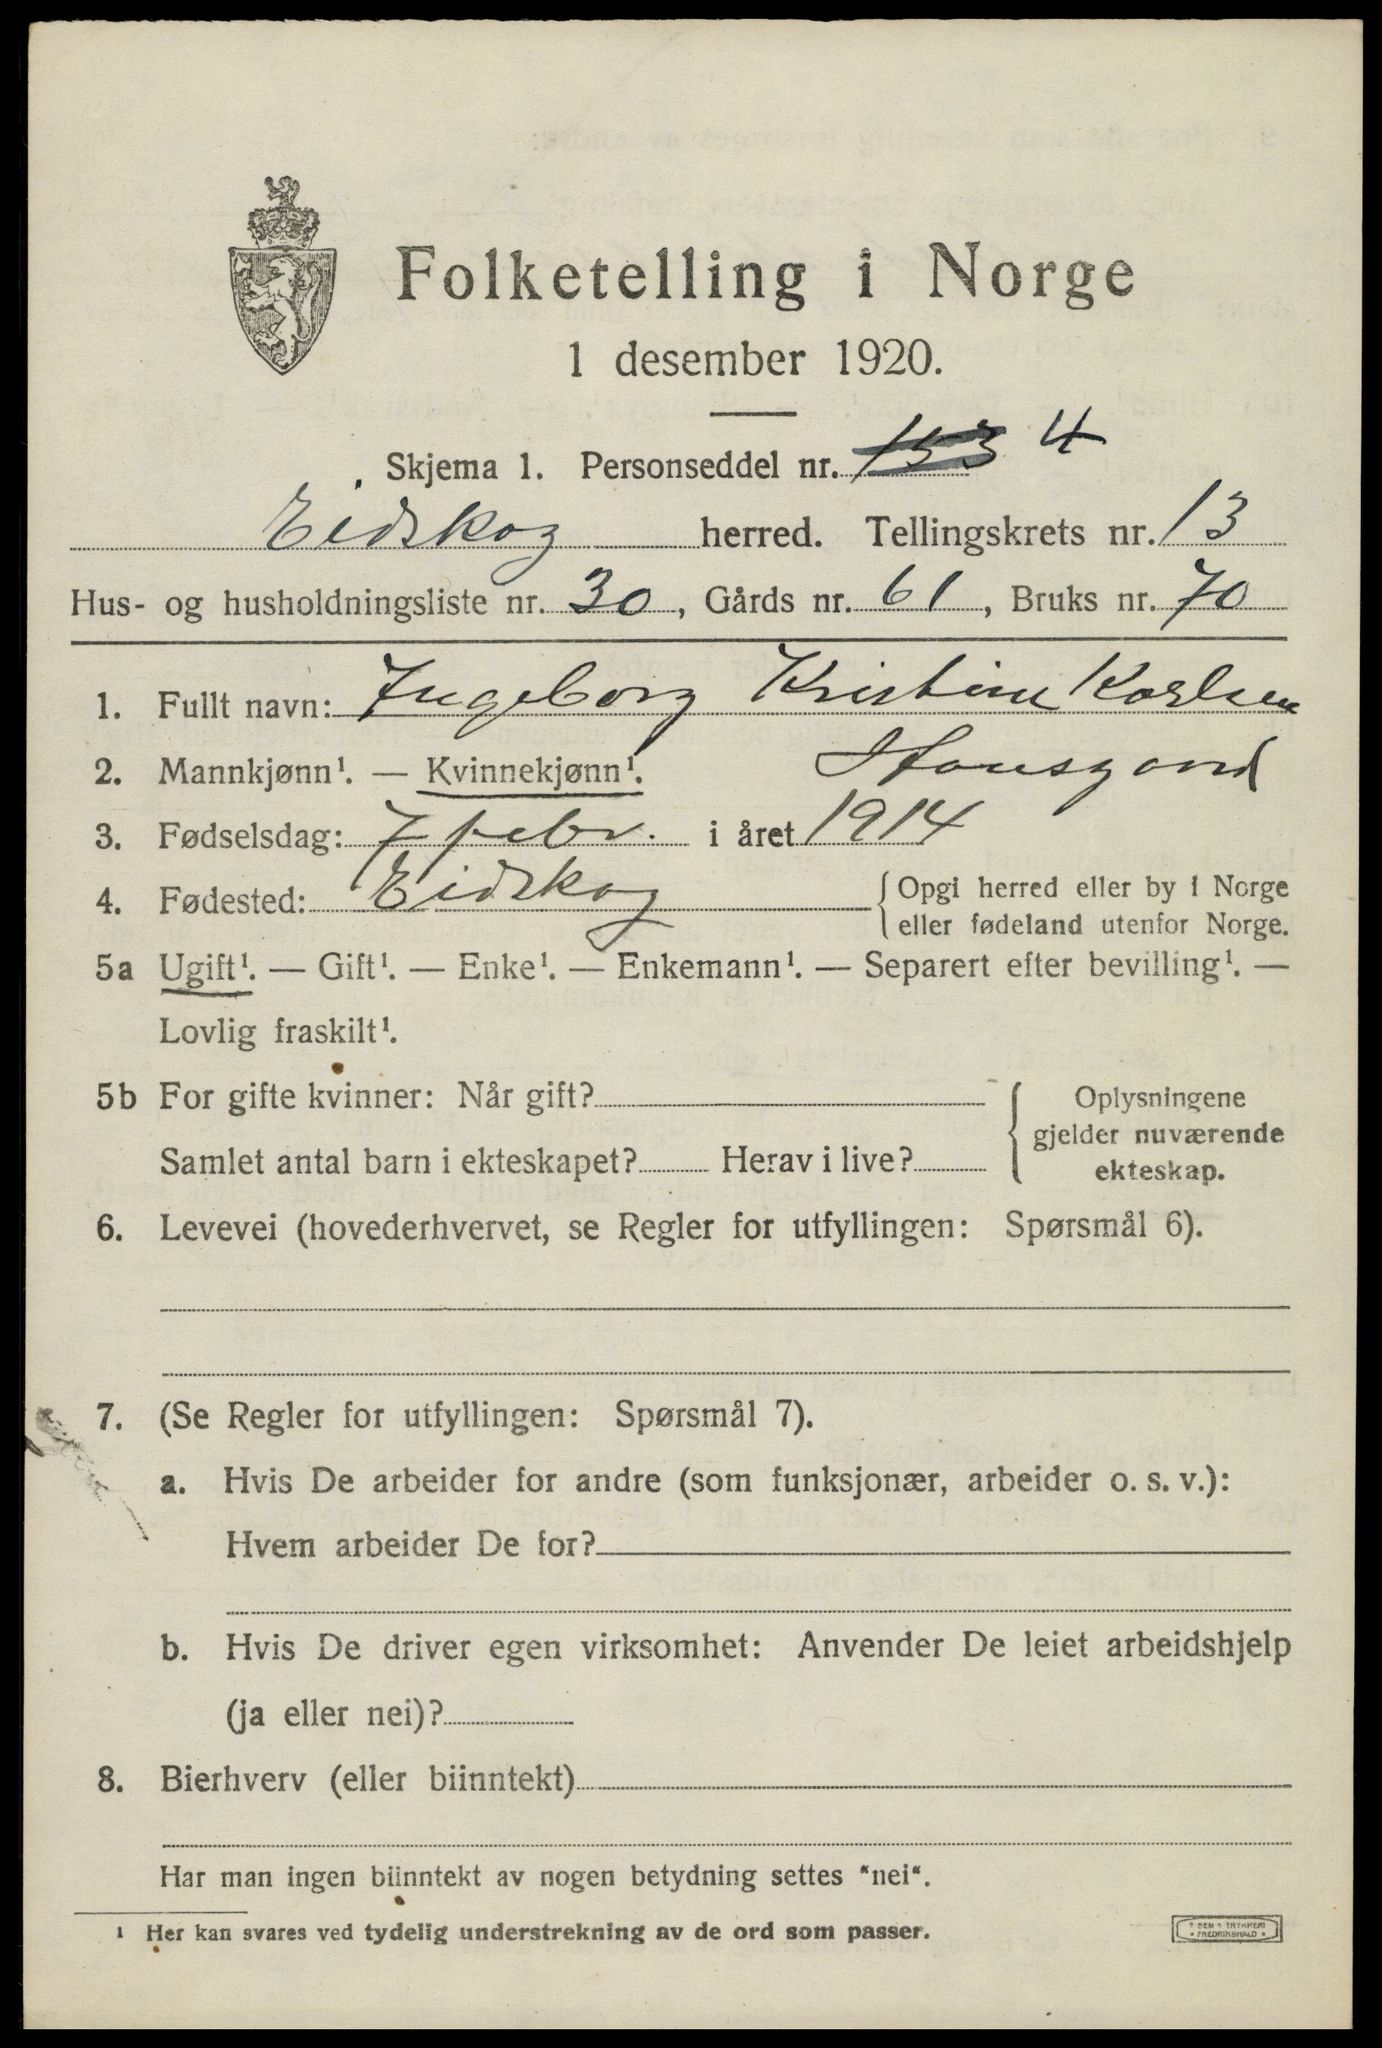 Folketelling i Norge
1 desember 1920.
Skjema 1. Personseddel nr. 153 4
Eidskog herred. Tellingskrets nr. 13
Hus- og husholdningsliste nr. 30, Gårds nr. 61, Bruks nr. 70
1. Fullt navn: Ingeborg Kristine Karlsen
2. Mannkjønn¹. — Kvinnekjønn¹.
3. Fødselsdag: 7 febr. i året 1914
4. Fødested: Eidskog {Opgi herred eller by i Norge
eller fødeland utenfor Norge.
5a Ugift¹. — Gift¹. — Enke¹. — Enkemann¹. — Separert efter bevilling¹. —
Lovlig fraskilt¹.
5b For gifte kvinner: Når gift?
Samlet antal barn i ekteskapet? Herav i live?
{Oplysningene
gjelder nuværende
ekteskap.
6. Levevei (hovederhvervet, se Regler for utfyllingen: Spørsmål 6).
7. (Se Regler for utfyllingen: Spørsmål 7).
a. Hvis De arbeider for andre (som funksjonær, arbeider o. s. v.):
Hvem arbeider De for?
b. Hvis De driver egen virksomhet: Anvender De leiet arbeidshjelp
(ja eller nei)?
8. Bierhverv (eller biinntekt)
Har man ingen biinntekt av nogen betydning settes "nei".
¹ Her kan svares ved tydelig understrekning av de ord som passer.